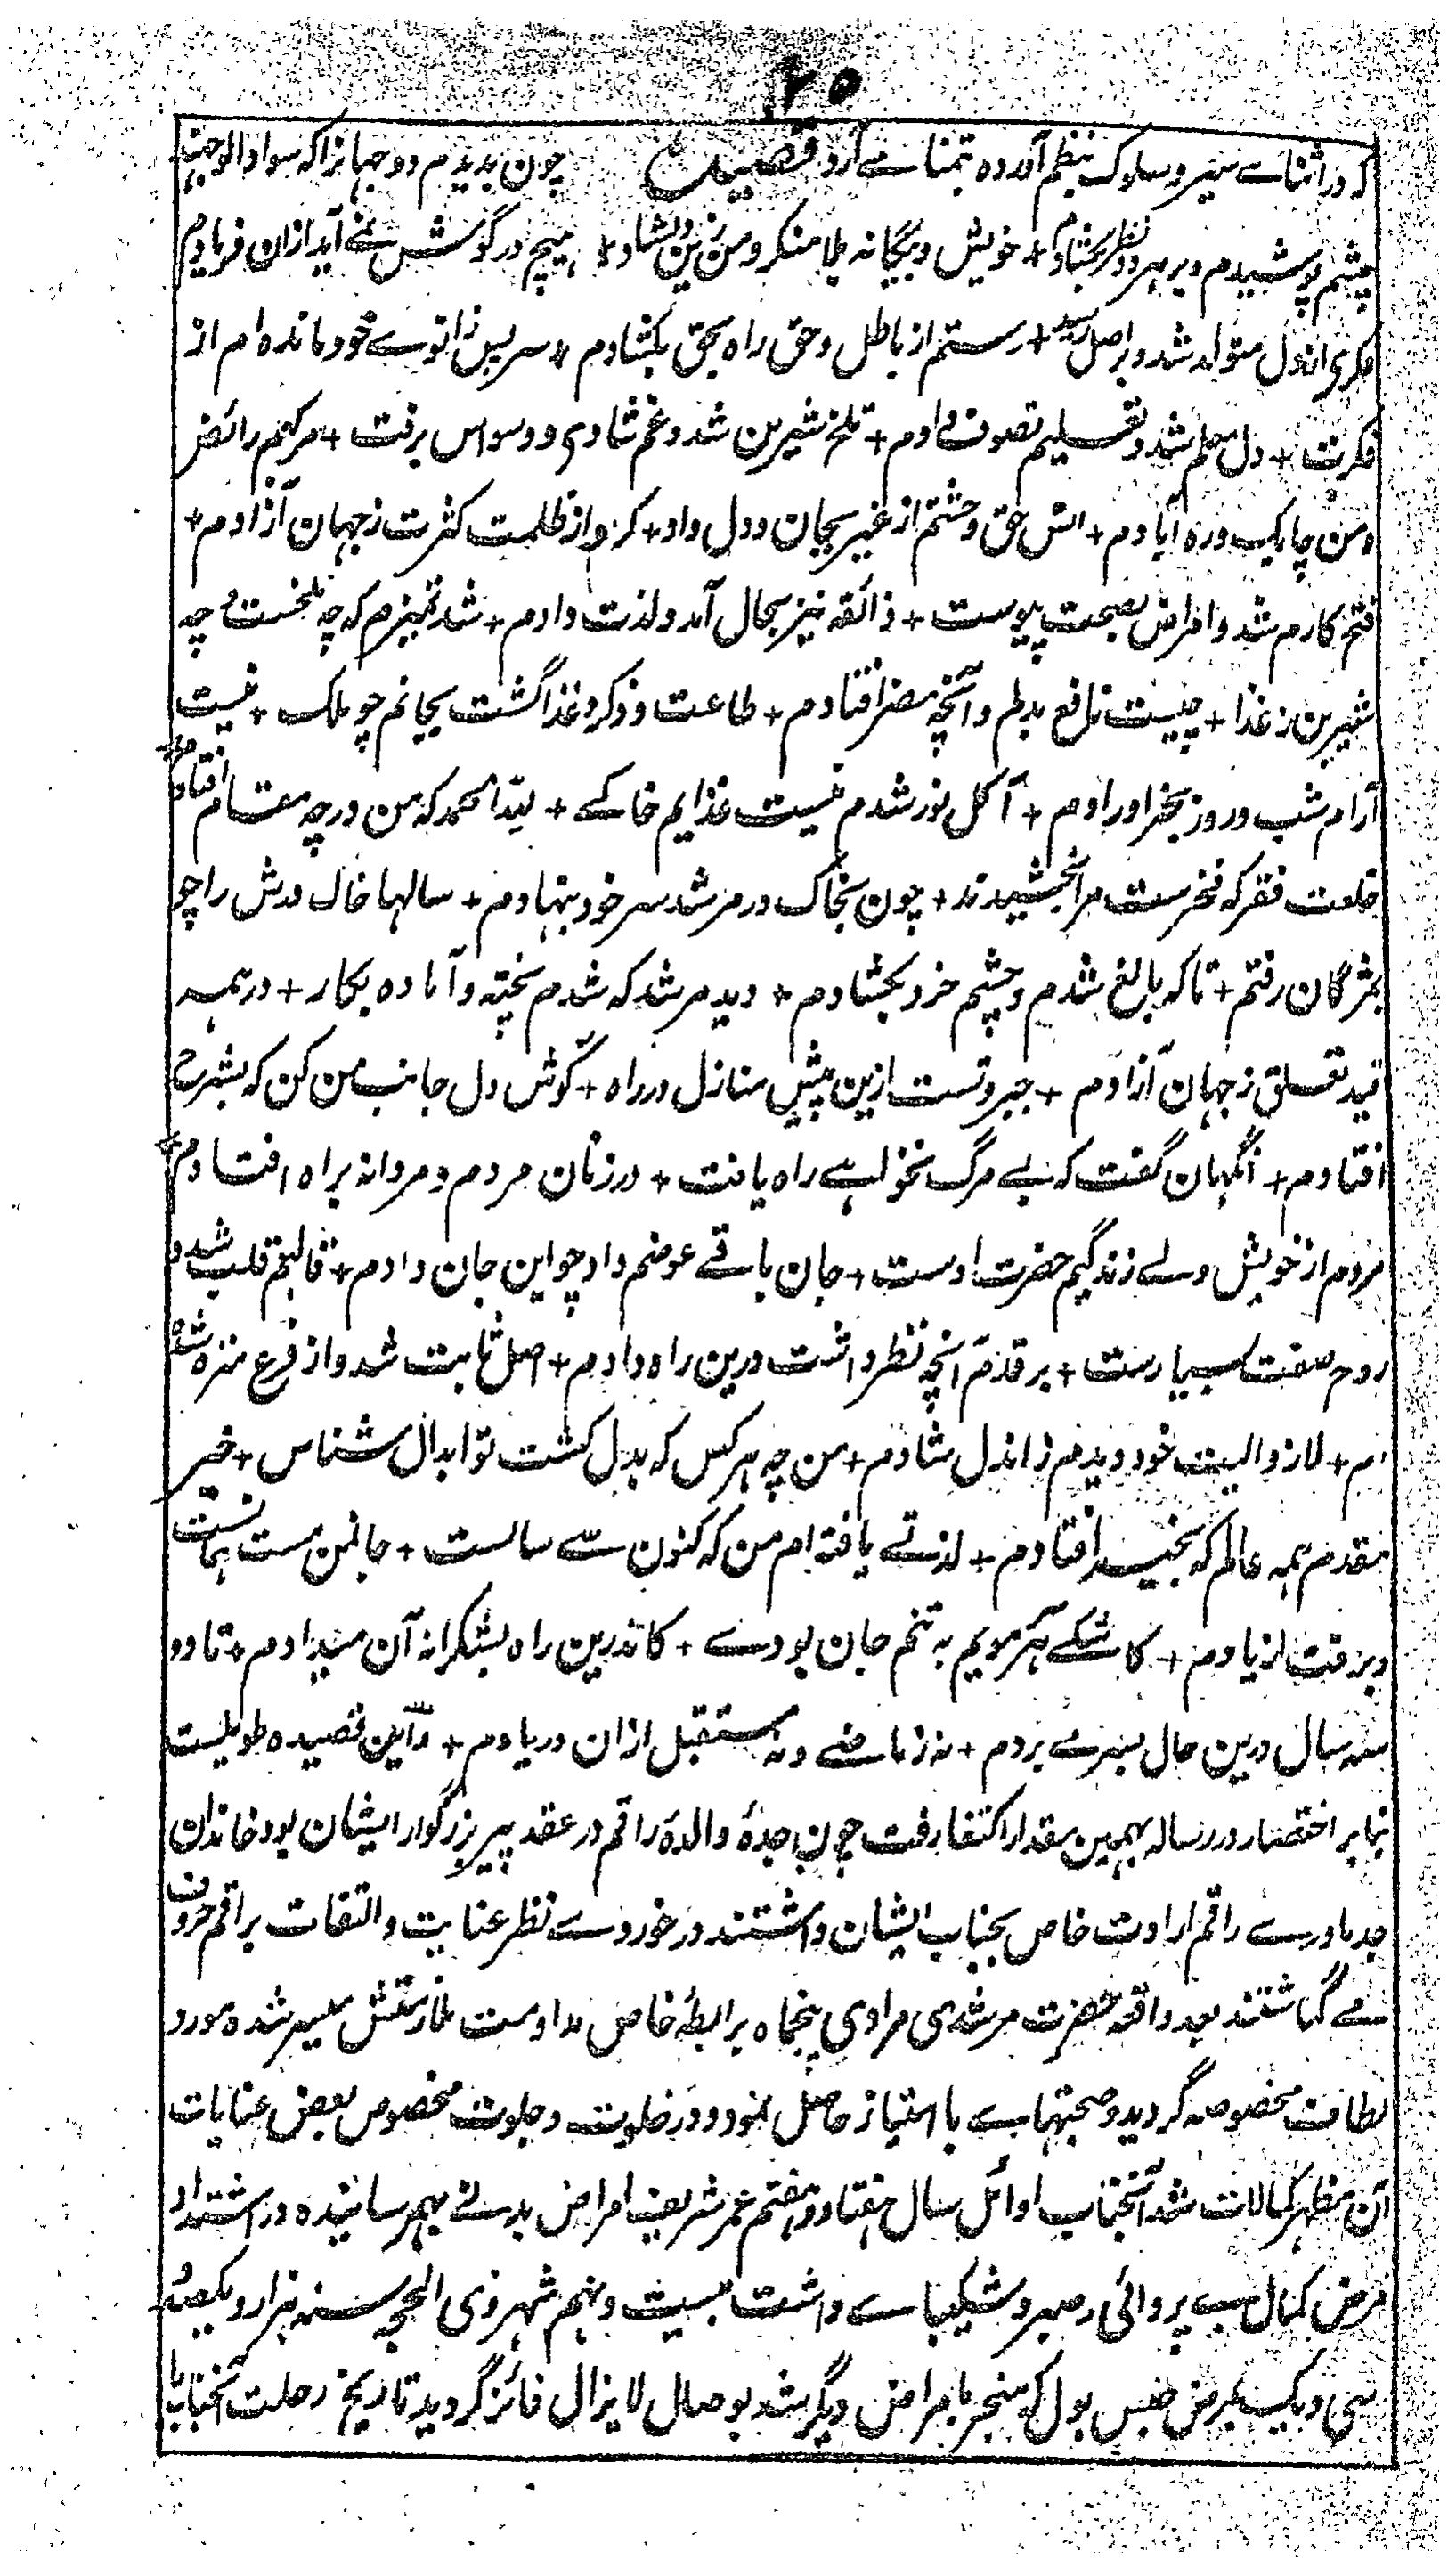 ۲۵
که در اثنای سیر و سلوک بنظم آورده تیمنا می آرد قصیده چون بدیدم دو جهانرا که سواد الوجهند
چشم پوشیدم و بر هر دو نظر نکشادم + خویش و بیگانه بلا منکر و من زین دلشادم + هیچ در گوش نمے آید ازان فریادم +
فکری اندر دل متولد شد و بر اصل رسید + رستم از باطل و حق راه بحق بکشادم + سر بسر زانوے خود مانده ام از
فکرت + دل معلم شد و تعلیم تصوف دادم + تلخ شیرین شد و غم شادی و وسواس برفت + مرکبم رائض
و من چابک و ره آبادم + انس حق وحشتم از غیر بجان و دل داد + کرد از ظلمت کثرت ز جهان آزادم +
فتح کارم شد و امراض بصحت پیوست + ذائقه نیز بحال آمد و لذت دادم + شد تمیزم که چه تلخست و چه
شیرین ز غذا + چیست نافع بدلم و آنچه مضر افتادم + طاعت و ذکر و غذا گشت بجانم چو ملک + نیست
آرام شب و روز بجز اورادم + آکل نور شدم نیست غذایم خاکے + لله الحمد که من در چه مقام افتادم +
خلعت فقر که فخرست مرا بخشیدند + چون بخاک در مرشد سر خود بنهادم + سالها خاک درش را چو
بمژگان رفتم + تا که بالغ شدم و چشم خرد بکشادم + دید مرشد که شدم پخته و آماده بکار + در همه
قید تعلق ز جهان آزادم + جبروتست ازین پیش منازل در راه + گوش دل جانب من کن که بشرح
افتادم + ناگهان گفت که بے مرگ نخواهے راه یافت + در زمان مردم و مردانه براه افتادم +
مردم از خویش ولے زندگیم حضرت اوست + جان باقے عوضم داد چو این جان دادم + قالبم قلب شد و
روح صفت سیارست + بر قدم آنچه نظر داشت درین راه دادم + اصل ثابت شد و از فرع منزه شده
ام + لازوالیت خود دیدم و از دل شادم + من چه هر کس که بدل گشت تو ابدال شناس + خیر
مقدم همه عالم که بخیر افتادم + لذتے یافته ام من که کنون سے سالست + حالمن مست همانست
و برفت از یادم + کاشکے هر سر مویم به تنم جان بودے + کاندرین راه بشکرانه آن میدادم + تا دو
سه سال درین حال بسر مے بردم + نه ز ماضے و نه مستقبل ازان در یادم + و این قصیده طویلست
بنا بر اختصار در رساله بهمین مقدار اکتفا رفت چون جدهٔ والدهٔ راقم در عقد پیر بزرگوار ایشان بود خاندان
جد مادرے راقم ارادت خاص بجناب ایشان داشتند در خوردے نظر عنایت و التفات براقم حروف
مے گماشتند بعد واقعه حضرت مرشدی مرادی پنجماه برابطهٔ خاص مداومت ملازمتش میسر شده مورد
لطافت مخصوصه گردید و صحبتهاے با امتیاز حاصل نمود و در خلوت و جلوت مخصوص بعض عنایات
آن مظهر کمالات شد آنجناب اوائل سال هفتاد و هفتم عمر شریف امراض بدنے بهم رسانیده در اشتداد
مرض کمال بے پروائی و صبر و شکیبائے داشت بیست و نهم شهر ذی الحجه سنه هزار و یکصد و
سی و یک بمرض حبس بول که منجر بامراض دیگر شد بوصال لایزال فائز گردید تاریخ رحلت آنجناب با